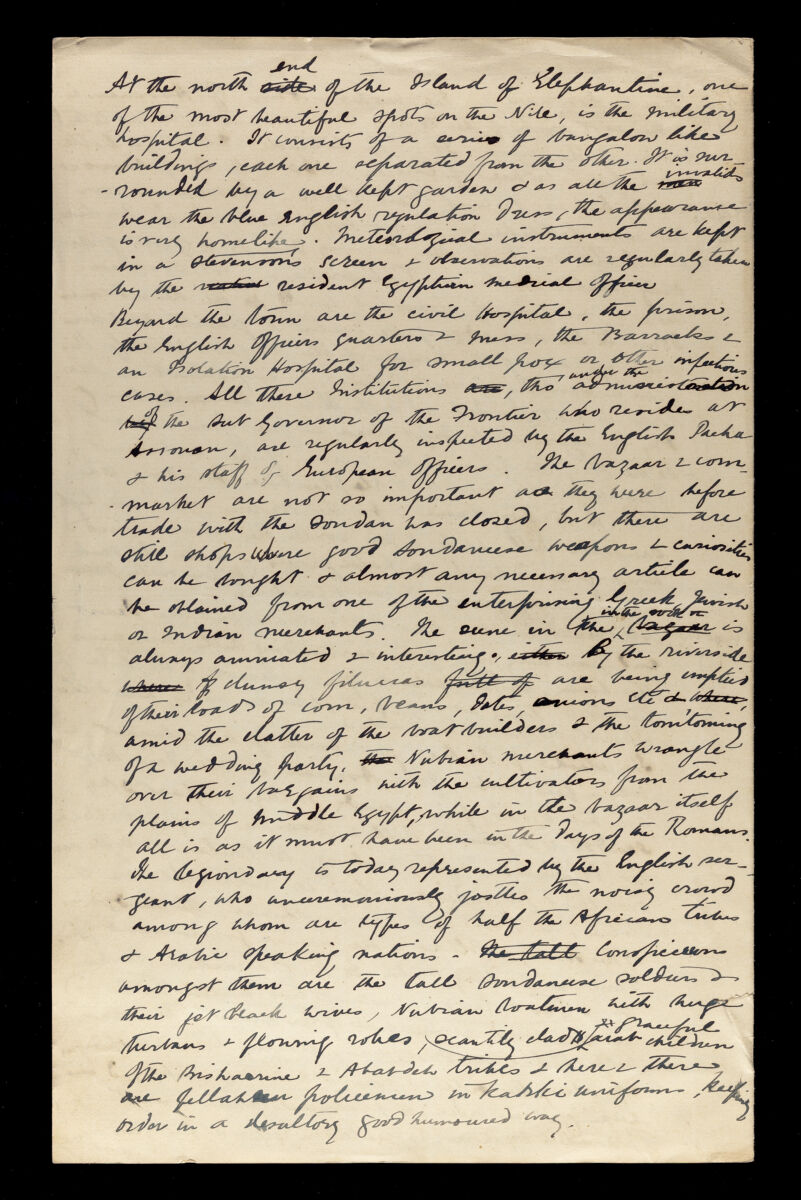 At the north side end of the Island of Elephantine, one
of the most beautiful spots on the Nile, is the military
hospital. It consists of a series of bungalow like
buildings, each one separated from the other. It is sur-
-rounded by a well kept garden & as all the men invalids
wear the blue English regulation dress, the appearance
is very homelike. Meteorological instruments are kept
in a Stevenson's screen & observations are regularly taken
by the resident Egyptian medical officer
Beyond the town are the civil Hospital, the prison,
the English Officers quarters & mess, the Barracks &
an Isolation Hospital for small pox or other infectious
cases. All these Institutions are, tho' under the administration
of the Sub Governor of the Frontier who resides at
Assouan, are regularly inspected by the English Pacha
& his staff of European officers. The bazaar & corn
-market are not so important as they were before
trade with the Soudan was closed, but there are
still shops where good Soudanese weapons & curiosities
can be bought & almost any necessary article can
be obtained from one of the enterprising Greek, Jewish
or Indian merchants. The scene in the in the sook or bazaar is
always animated & interesting, either By the riverside
where if clumsy filuccas full of are being emptied
of their loads of corn, beans, dates, onions etc & where,
amid the clatter of the boat builders & the tom'toming
of a wedding party, the Nubian merchants wrangle
over their bargains with the cultivators from the
plains of Middle Egypt, while in the bazaar itself
all is as it must have been in the days of the Romans.
The legionary is today represented by the English ser-
geant, who unceremoniously jostles the noisy crowd
among whom are types of half the African tribes
& Arabic speaking nations. The tall Conspicuous
amongst them are the tall Soudanese soldiers &
their jet black wives, Nubian boatmen with huge
turbans & flowing robes, scantily clad & graceful Arab children
of the Bishareen & Ababdeh tribes & here & there
are fellaheen policemen in kadki uniforms, keeping
order in a desultory good humoured way.